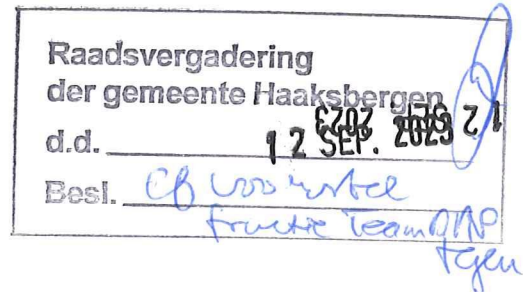 Raadsvergadering
der gemeente Haaksbergen
d.d. 12 SEP. 2023
Besl. Cf voorstel
fractie Team
tegen